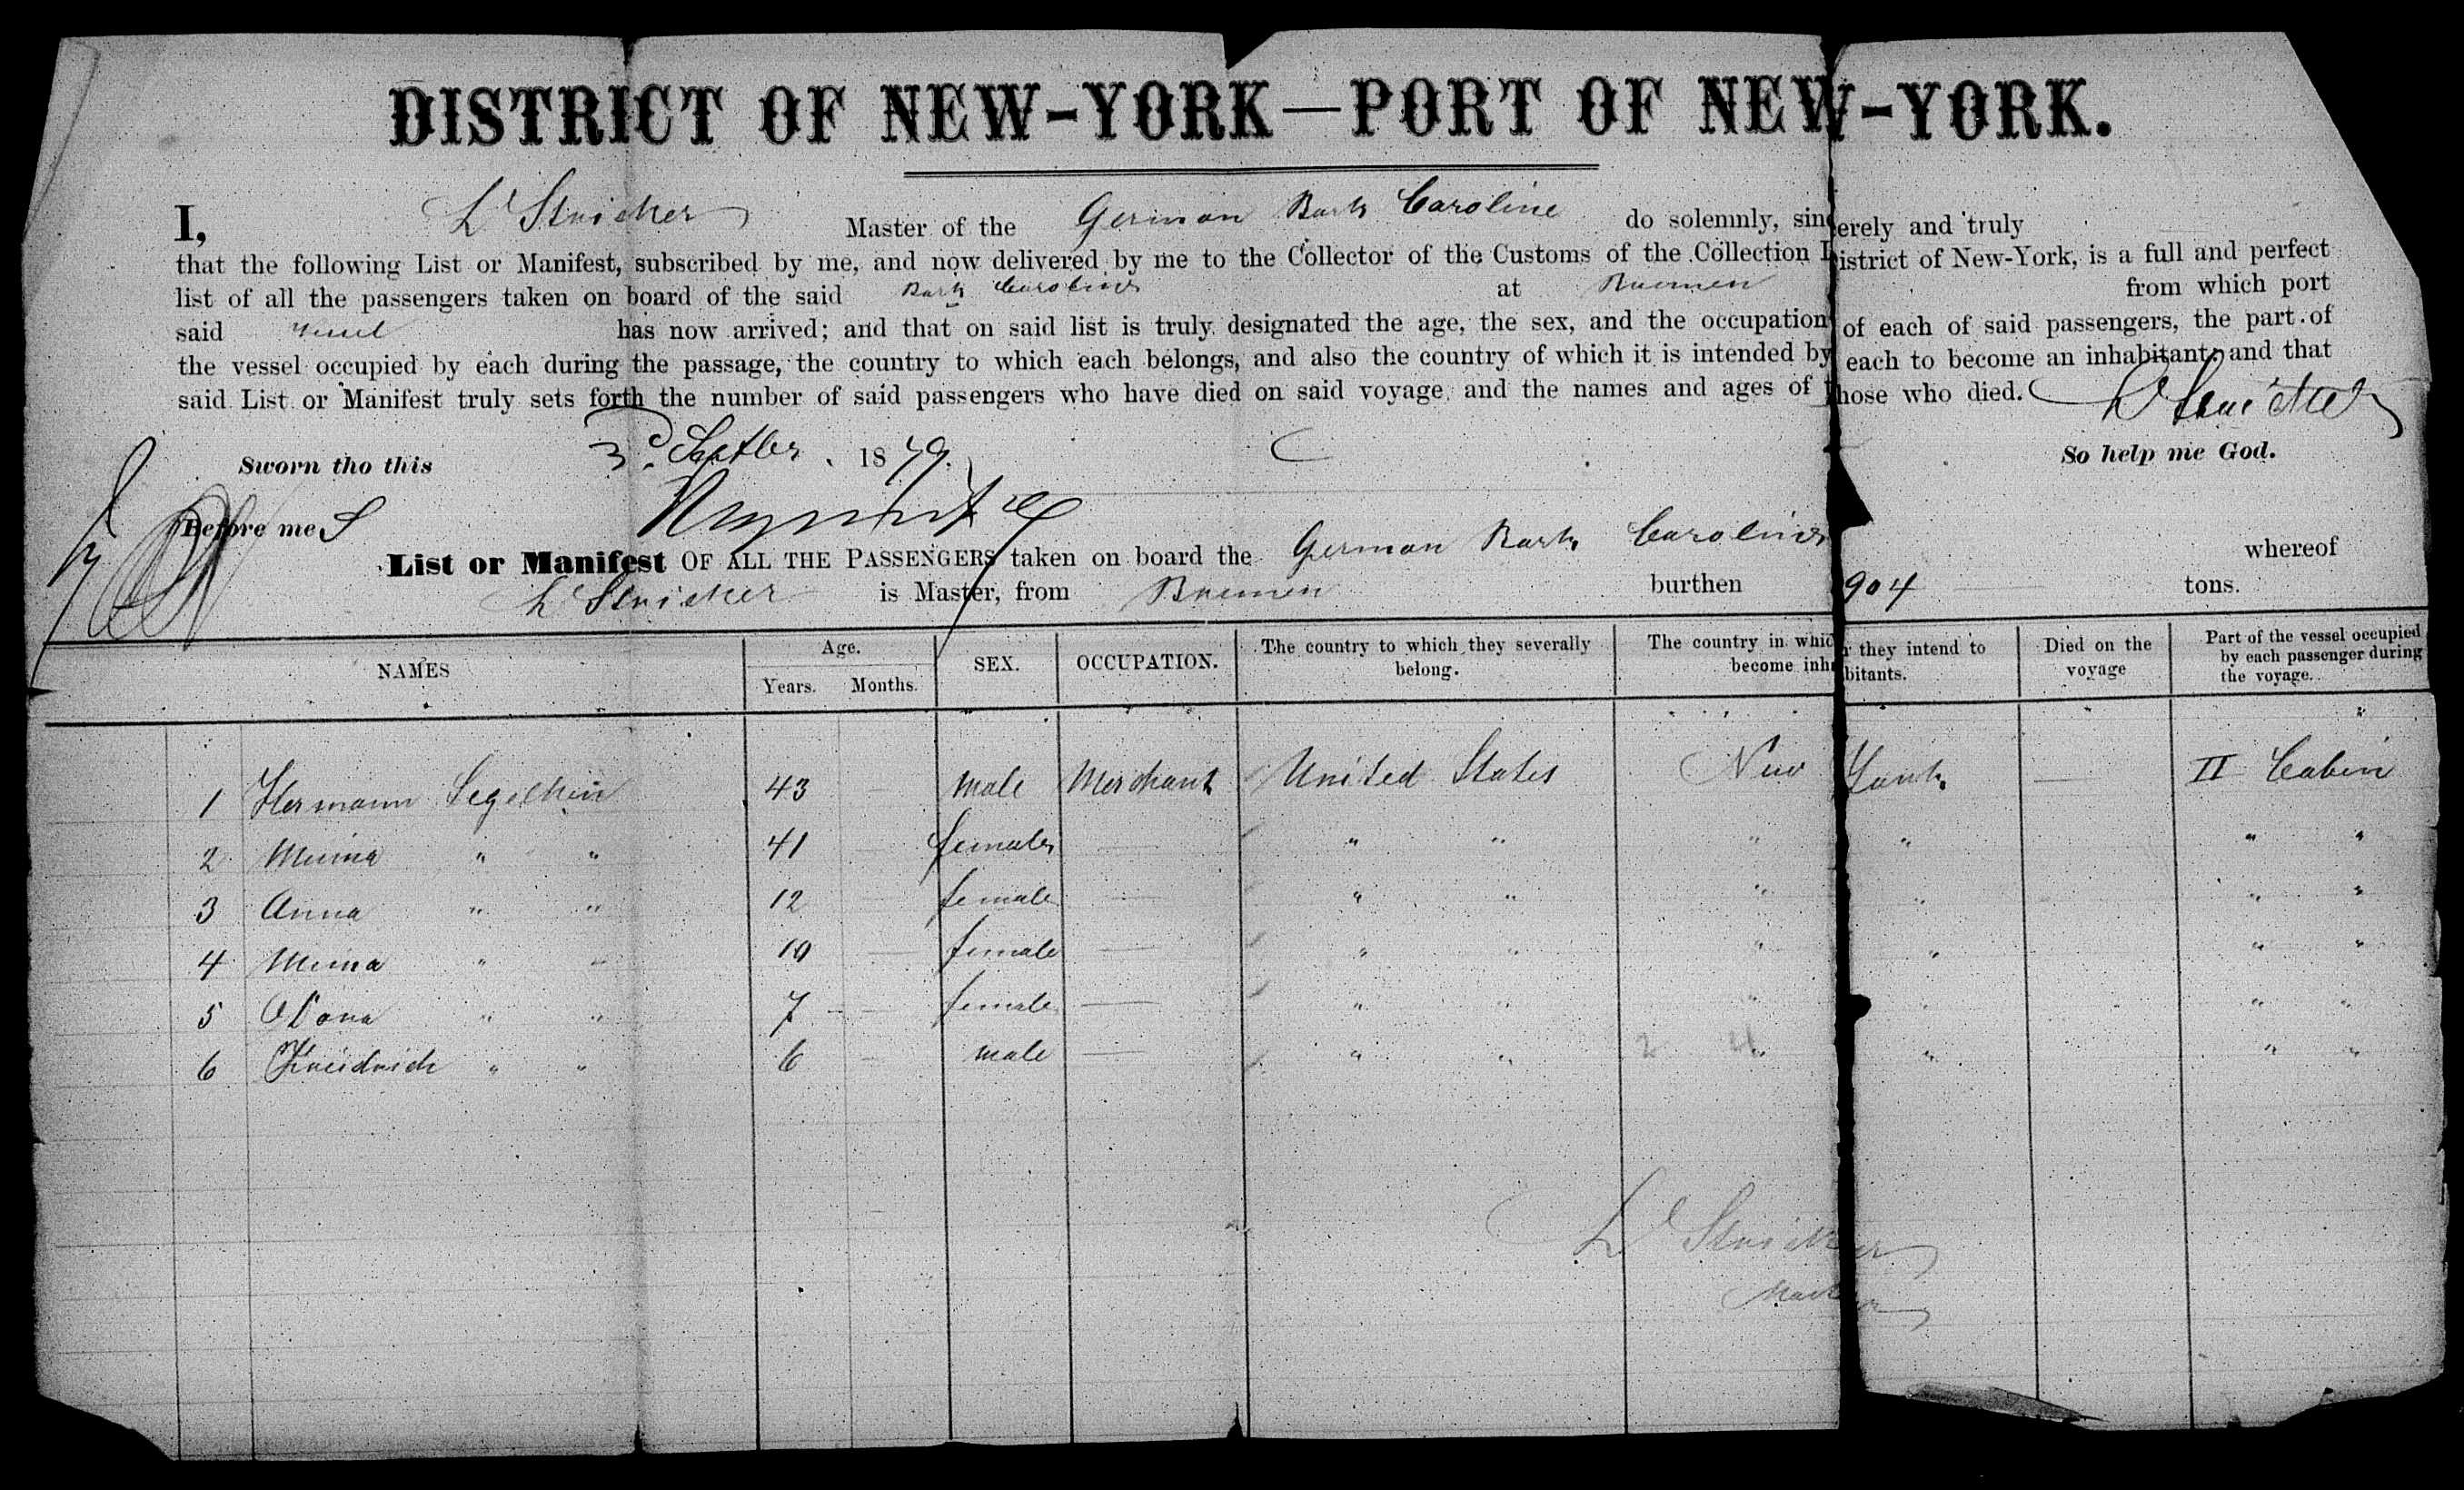 DISTRICT OF NEW-YORK—PORT OF NEW-YORK.
I, Master of the German Bark Caroline do solemnly, sincerely and truly
that the following List or Manifest, subscribed by me, and now delivered by me to the Collector of the Customs of the Collection District of New-York, is a full and perfect
list of all the passengers taken on board of the said Bark Caroline at Bremen from which port
said vessel has now arrived; and that on said list is truly designated the age, the sex, and the occupation of each of said passengers, the part of
the vessel occupied by each during the passage, the country to which each belongs, and also the country of which it is intended by each to become an inhabitant; and that
said List or Manifest truly sets forth the number of said passengers who have died on said voyage and the names and ages of those who died.
Sworn tho this 3d Septbr. 1879. So help me God.
Before me
List or Manifest OF ALL THE PASSENGERS taken on board the German Bark Caroline whereof
is Master, from Bremen burthen 904 tons.
NAMES Age. Years. Months. SEX. OCCUPATION. The country to which they severally belong. The country in which they intend to become inhabitants. Died on the voyage Part of the vessel occupied by each passenger during the voyage.
1 Hermann 43 — male Merchant United States New York — II Cabin
2 " " 41 — female — " " " " " "
3 Anna " " 12 — female — " " " " " "
4 " " 10 — female — " " " " " "
5 " " 7 — female — " " " " " "
6 Friedrich " " 6 — male — " " " " " "